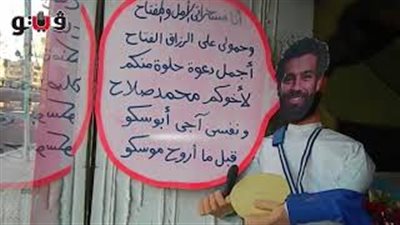 ڤيتو
أنا مسحراتي الأمل والمفتاح
وحمولى على الرزاق الفتاح
أجمل دعوة حلوة منكم
لأخوكم محمد صلاح
ونفسى آجى أبوسكو
قبل ما أروح موسكو